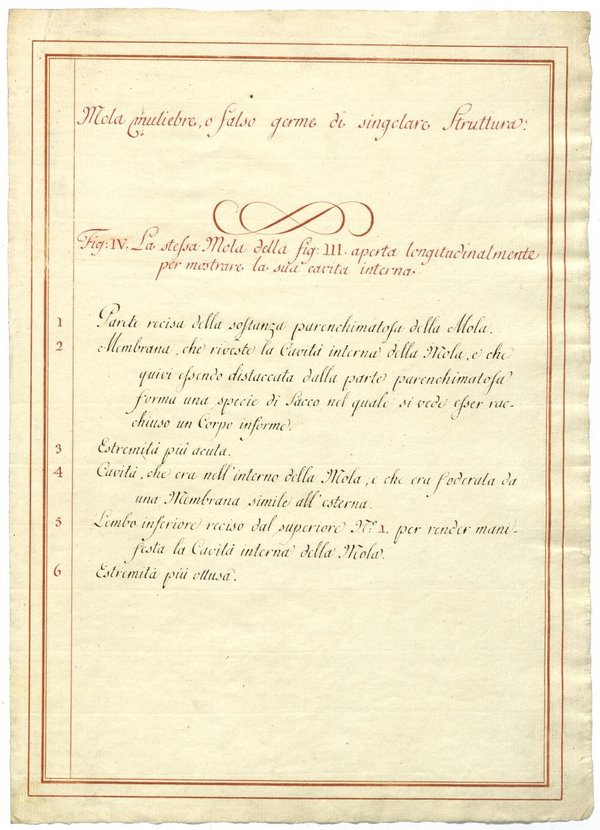 Mola muliebre, o falso germe di singolare Struttura:
Fig: IV. La stessa Mola della fig: III. aperta longitudinalmente
per mostrare la sua cavita interna.
1 Parete recisa della sostanza parenchimatosa della Mola.
2 Membrana, che riveste la Cavità interna della Mola, e che
quivi essendo distaccata dalla parte parenchimatosa
forma una specie di Sacco nel quale si vede esser rac-
chiuso un Corpo informe.
3 Estremità più acuta.
4 Cavità, che era nell'interno della Mola, e che era foderata da
una Membrana simile all'esterna.
5 Lembo inferiore reciso dal superiore Nº. 1. per render mani-
festa la Cavità interna della Mola.
6 Estremità più ottusa.